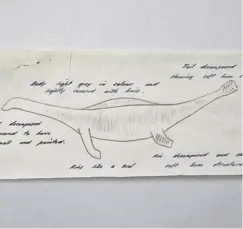 Tail decomposed
showing soft bone s
Body light grey in colour and
lightly covered with hair.
decomposed
eared to have
mall and pointed.
Fins like a seal
Fin decomposed and
soft bone structure